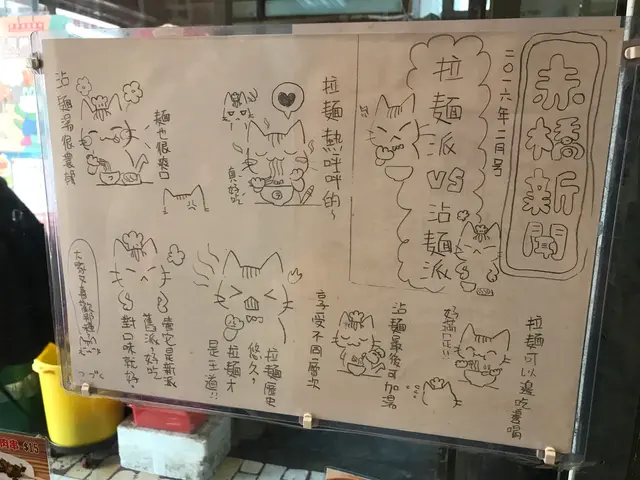 赤橋新聞
二〇一六年二月号
拉麵派VS沾麵派
拉麵熱呼呼的~
真好吃
麵也很爽口
沾麵湯很濃純
拉麵可以邊吃邊喝
好鹹
沾麵最後可加湯
享受不同層次
拉麵歷史
悠久,
拉麵才
是王道!!
管它是新派
舊派好吃
對口味就好